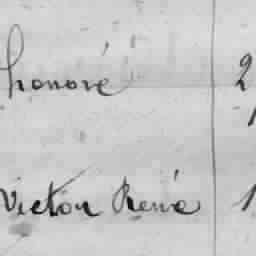 honoré 2
1
Victor René 1